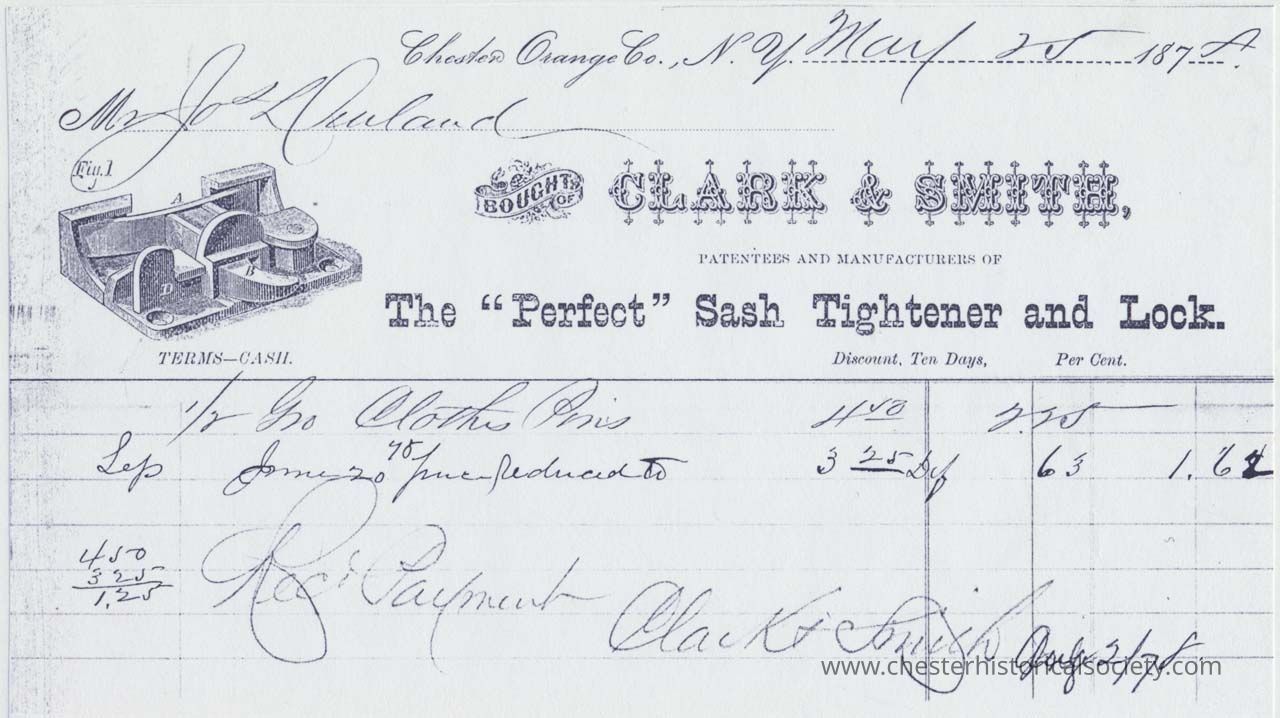 Chester Orange Co., N. Y. May 25 1878.
Mr Jos Durland
Fig. 1
A
B
D
BOUGHT OF CLARK & SMITH,
PATENTEES AND MANUFACTURERS OF
The "Perfect" Sash Tightener and Lock.
TERMS—CASH. Discount, Ten Days, Per Cent.
1/2 Gro Clothes Pins 4 50 2.25
Sep June 20 78 price reduced to 3 25 Dif 63 1.62
4 50
3 25
1.25
Recd Payment
Clark & Smith
www.chesterhistoricalsociety.com